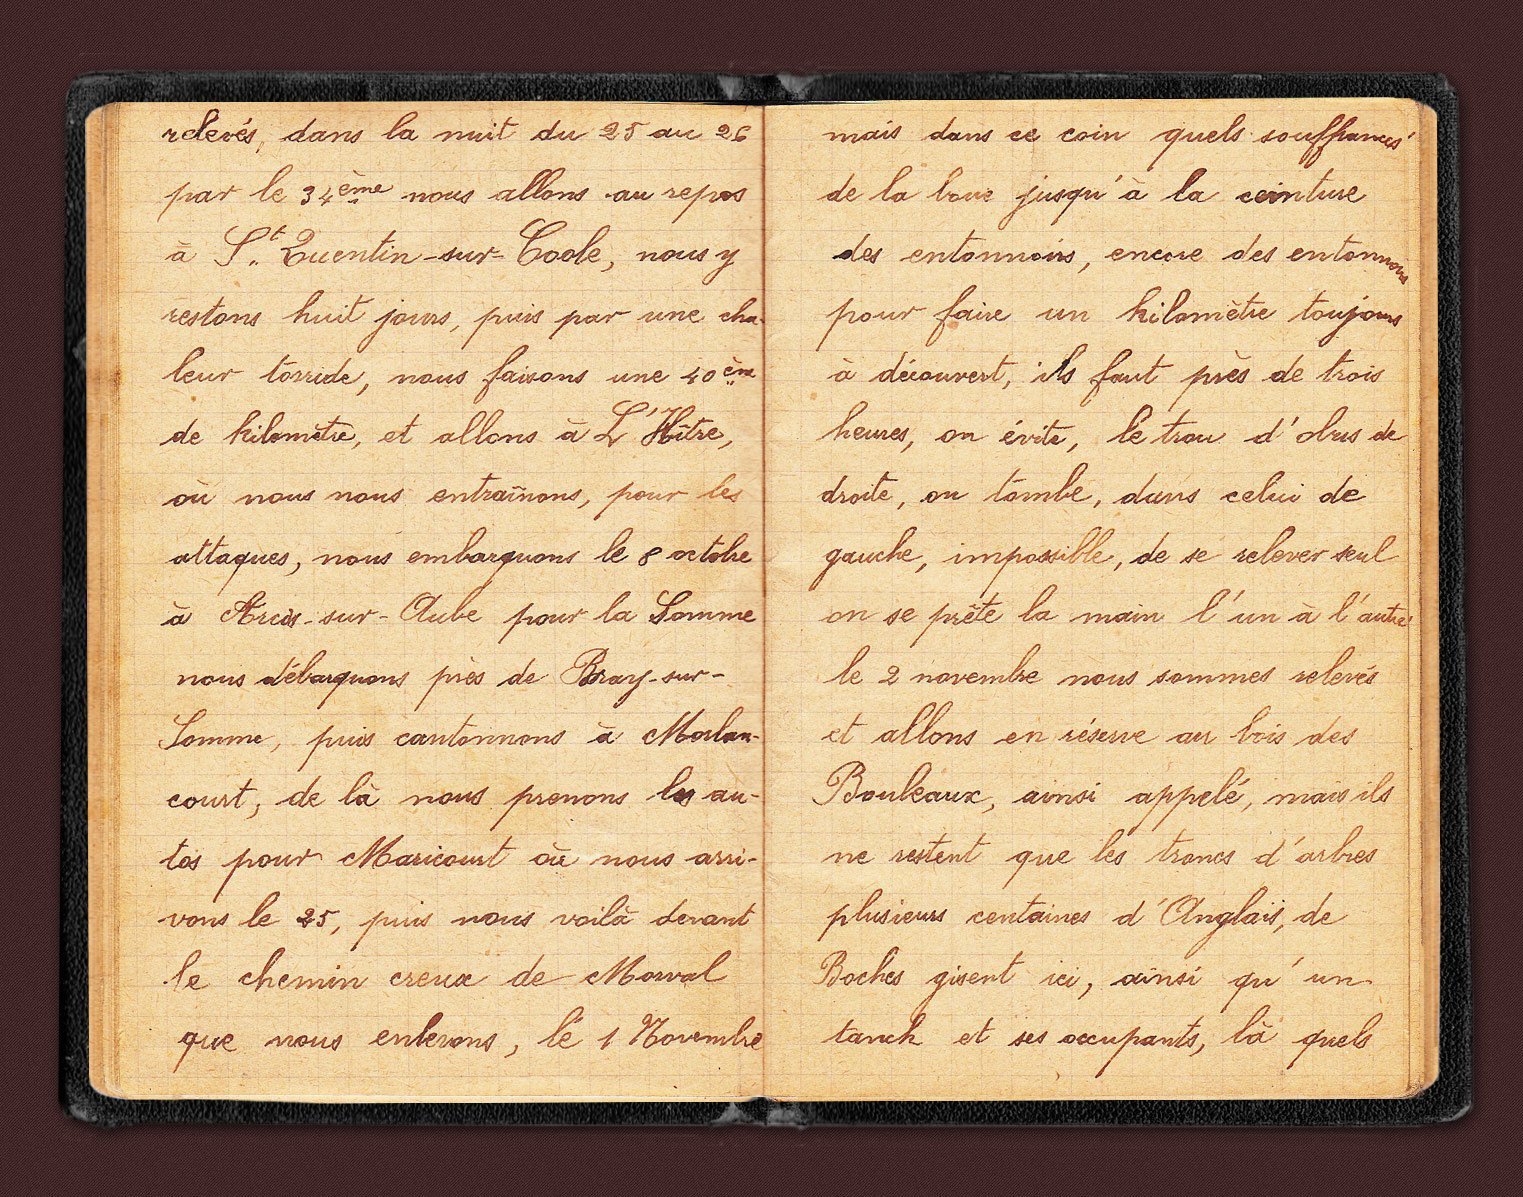 relevés, dans la nuit du 25 au 26
par le 34ème nous allons au repos
à St Quentin-sur-Coole, nous y
restons huit jours, puis par une cha-
leur torride, nous faisons une 40ème
de kilomètre, et allons à L'Hître,
où nous nous entraînons, pour les
attaques, nous embarquons le 8 octobre
à Arcis-sur-Aube pour la Somme
nous débarquons près de Bray-sur-
Somme, puis cantonnons à Morlan-
court, de là nous prenons les au-
tos pour Maricourt où nous arri-
vons le 25, puis nous voilà devant
le chemin creux de Morval
que nous enlevons, le 1 Novembre
mais dans ce coin quels souffrances
de la boue jusqu'à la ceinture
des entonnoirs, encore des entonnoirs
pour faire un kilomètre toujours
à découvert, ils faut près de trois
heures, on évite, le trou d'obus de
droite, on tombe, dans celui de
gauche, impossible, de se relever seul
on se prête la main l'un à l'autre
le 2 novembre nous sommes relevés
et allons en réserve au bois des
Bouleaux, ainsi appelé, mais ils
ne restent que les troncs d'arbres
plusieurs centaines d'Anglais, de
Boches gisent ici, ainsi qu'un
tanck et ses occupants, là quels